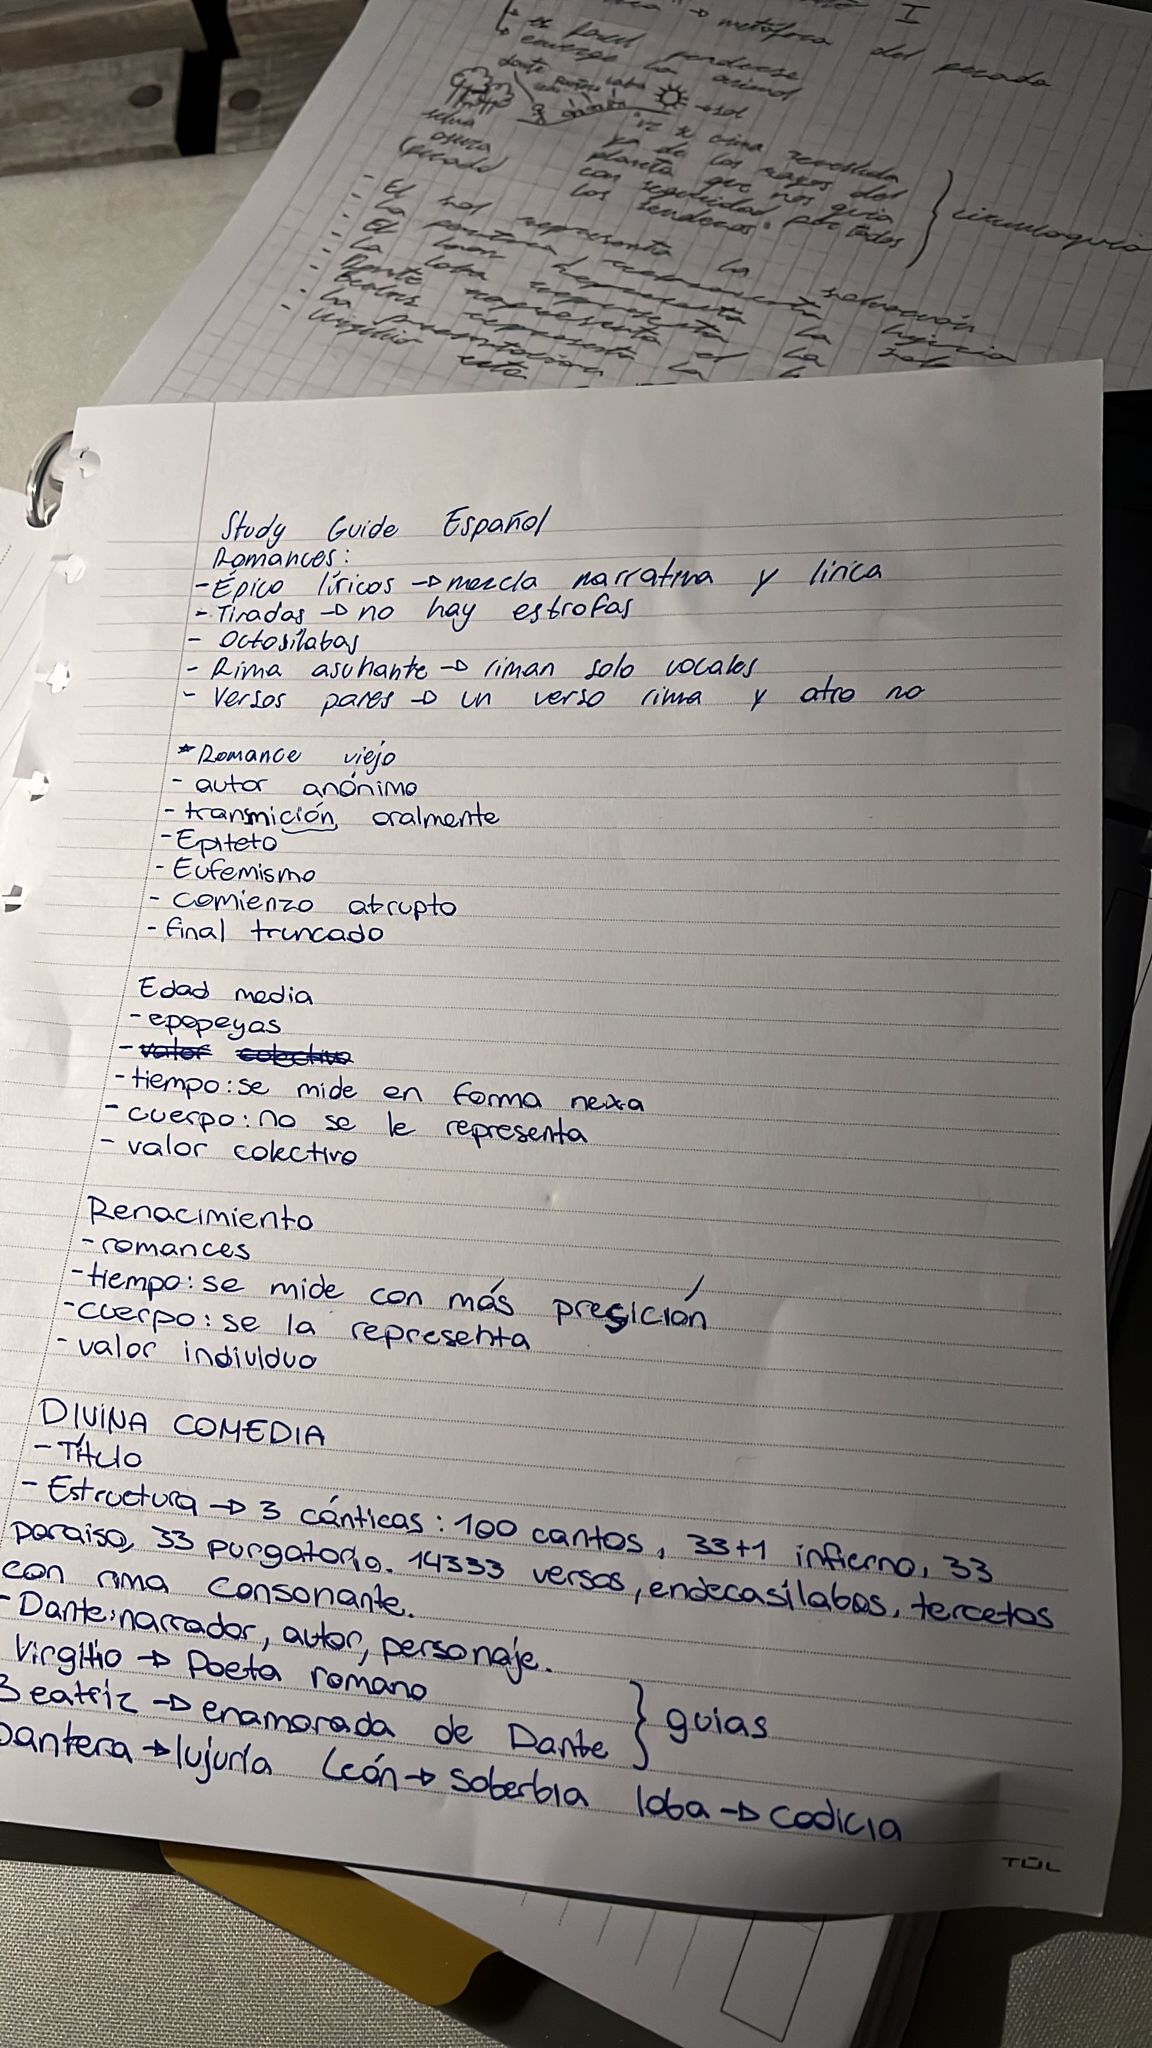 I
→ metáfora del pecado
es facil perderse
envenga la animal
Dante
→ sol
selva
oscura
(pecado)
"iz x cima revestida
ya de los rayos del
planeta que nos guia
con seguridad por todos
los senderos."
circunloquio
- El sol representa la salvación
- La pantera representa la lujuria
- El león representa la
- La loba representa la
- Dante representa el
- Beatriz representa la
- La
- Virgilio
Study Guide Español
Romances:
- Épico líricos → mezcla narrativa y lírica
- Tiradas → no hay estrofas
- Octosílabas
- Rima asonante → riman solo vocales
- Versos pares → un verso rima y otro no
* Romance viejo
- autor anónimo
- transmición oralmente
- Epiteto
- Eufemismo
- comienzo abrupto
- final truncado
Edad media
- epopeyas
- valor colectivo
- tiempo: se mide en forma nexa
- cuerpo: no se le representa
- valor colectivo
Renacimiento
- romances
- tiempo: se mide con más presición
- cuerpo: se la representa
- valor individuo
DIVINA COMEDIA
- Título
- Estructura → 3 cánticas: 100 cantos, 33+1 infierno, 33
paraiso, 33 purgatorio. 14333 versos, endecasílabos, tercetos
con rima consonante.
- Dante: narrador, autor, personaje.
Virgilio → Poeta romano
Beatriz → enamorada de Dante } guias
Pantera → lujuria León → Soberbia loba → codicia
TŪL